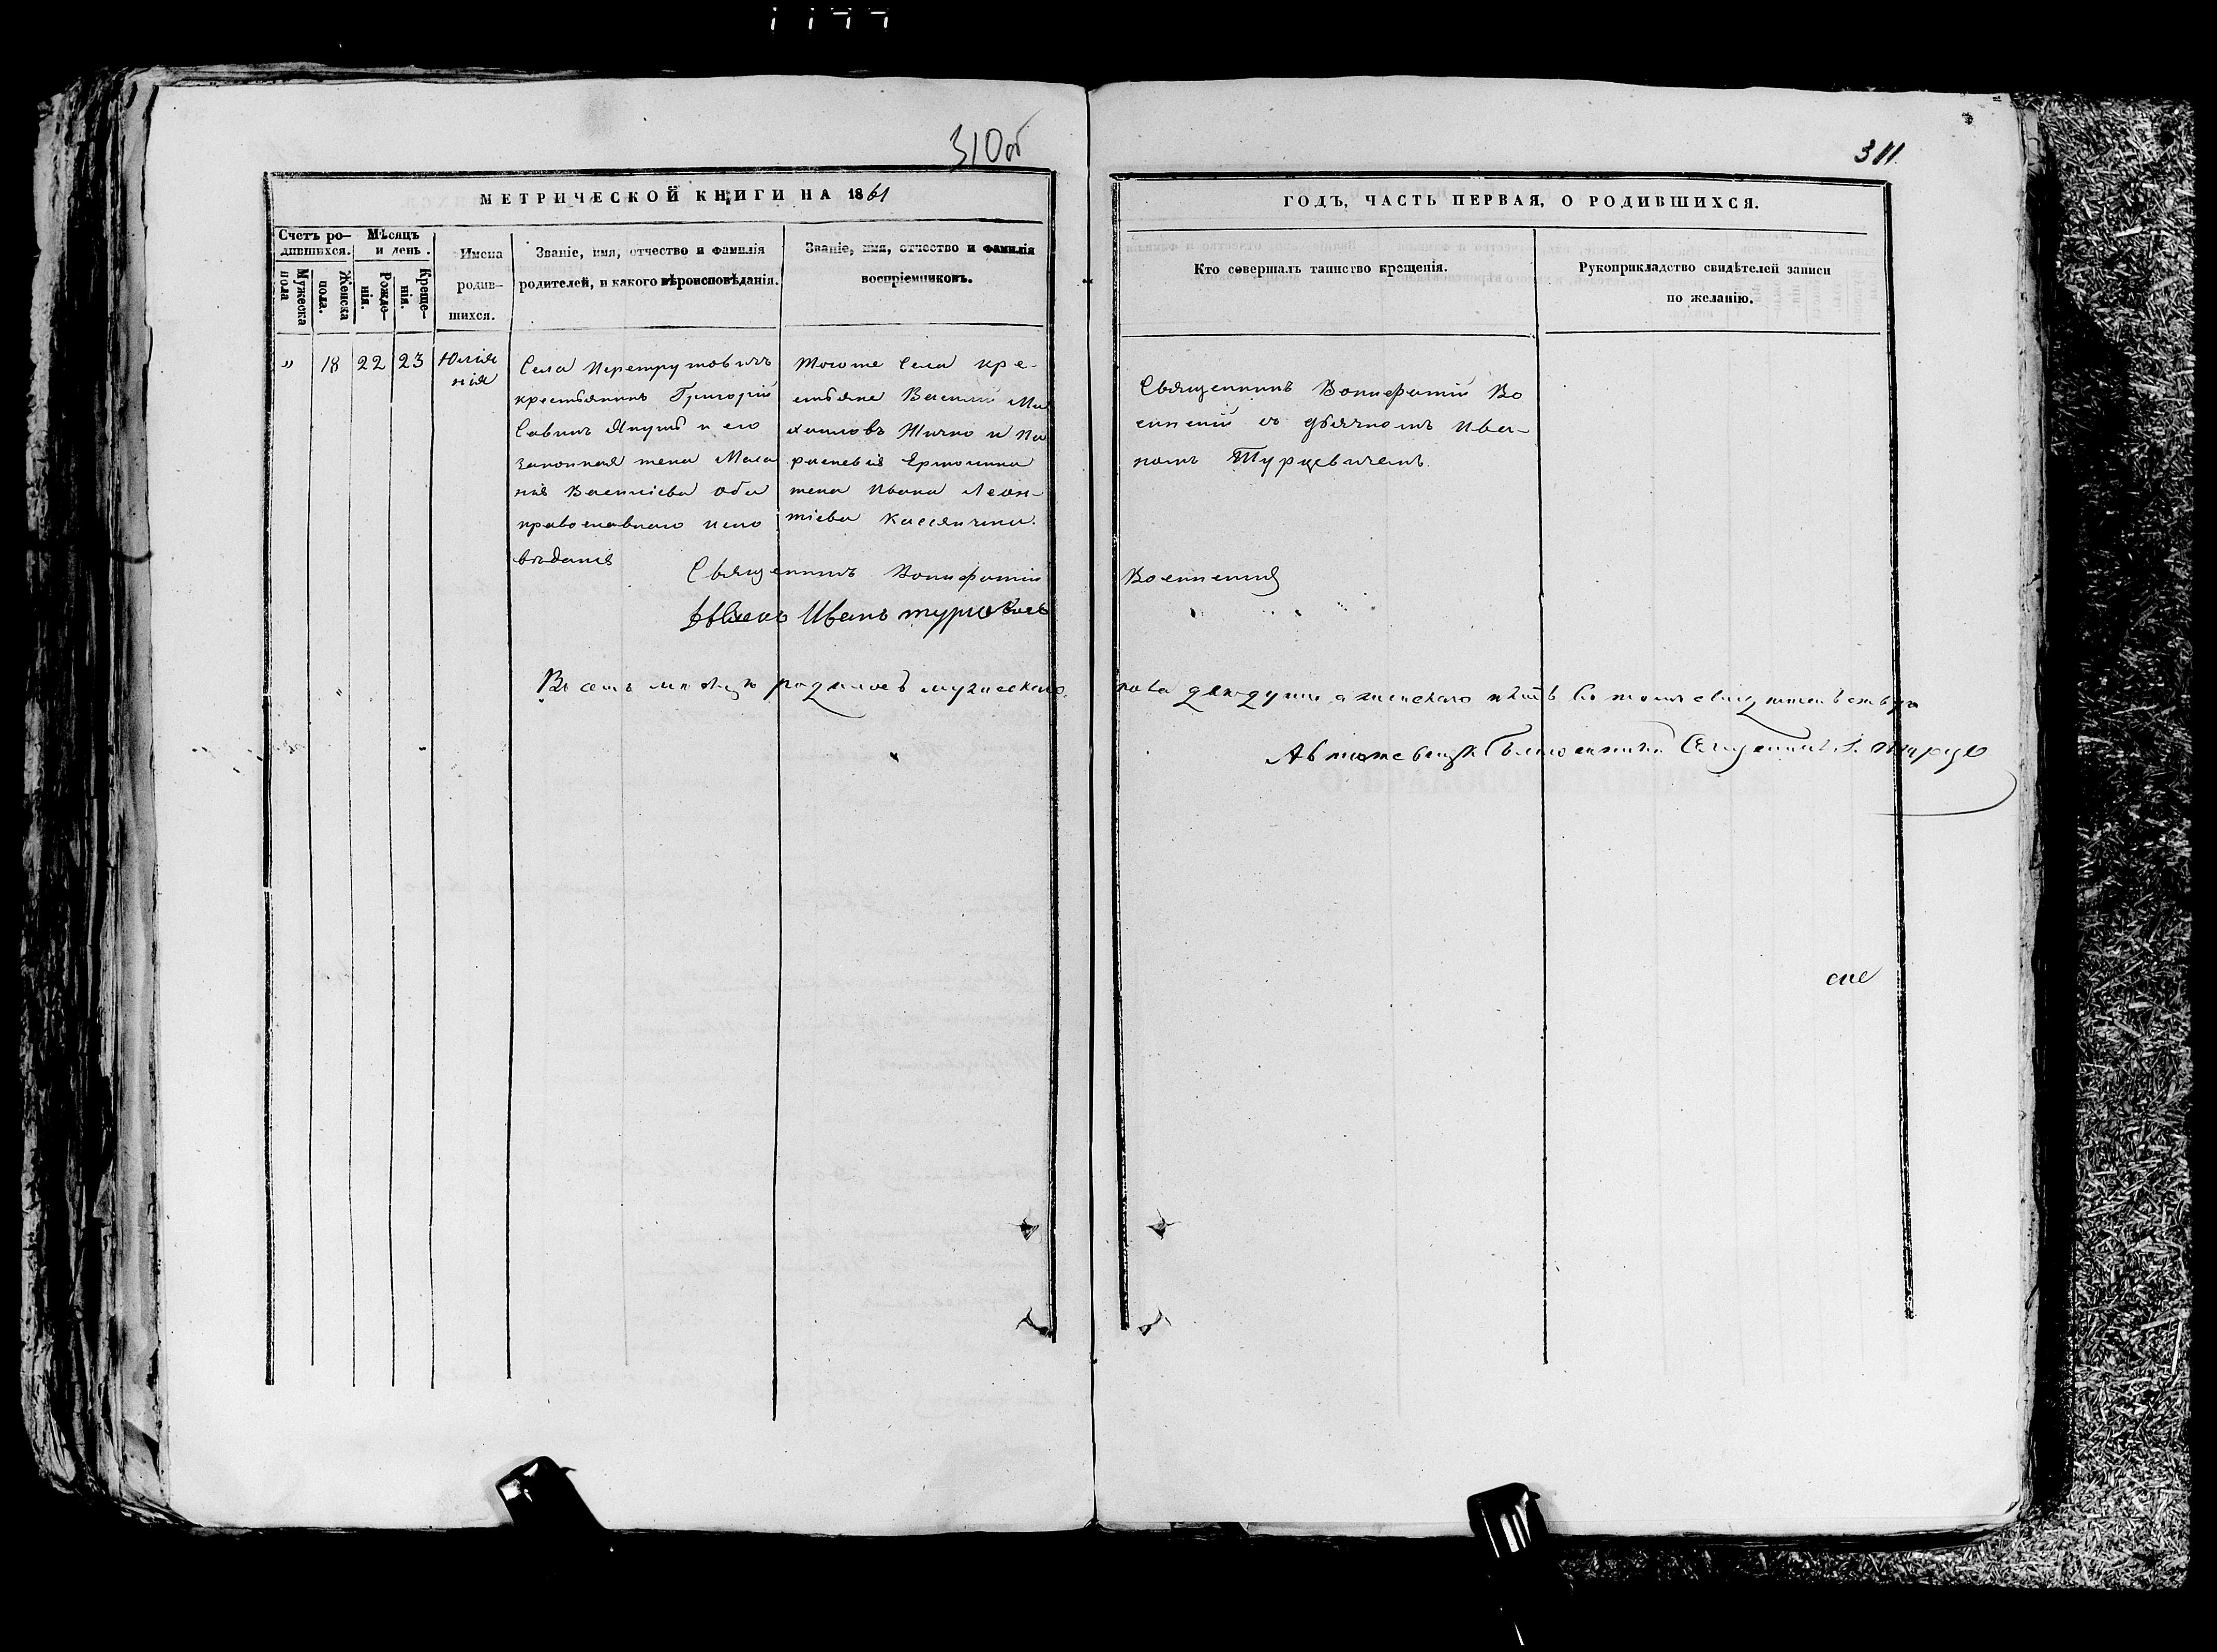 310об
311
МЕТРИЧЕСКОЙ КНИГИ НА 1861
ГОДЪ, ЧАСТЬ ПЕРВАЯ, О РОДИВШИХСЯ.
Счетъ ро-
дившихся.
Мужеска
пола
Женска
пола.
Мѣсяцъ
и день.
Рожде-
нія.
Креще-
нія.
Имена
родив-
шихся.
Званіе, имя, отчество и фамилія
родителей, и какого вѣроисповѣданія.
Званіе, имя, отчество и фамилія
воспріемниковъ.
Кто совершалъ таинство крещенія.
Рукоприкладство свидѣтелей записи
по желанію.
" 18 22 23
Юліа
нія
Села Перетрутовичъ
крестьянинъ Григорій
Савинъ Якушъ и его
законная жена Мела
нія Василіева оба
православнаго испо
вѣданія
Тогоже Села кре-
стьяне Василій Ми
хаиловъ Жичко и Па
раскевія
жена Ивана Леон-
тіева
Священникъ Вонифатій Во
с дьячкомъ Ива-
номъ Турцевичемъ.
Священникъ Вонифатій
Дьячекъ Иванъ Турцевичъ
Въ семъ мѣсяцѣ родилось мужескаго
пола двѣ души а женскаго
сие